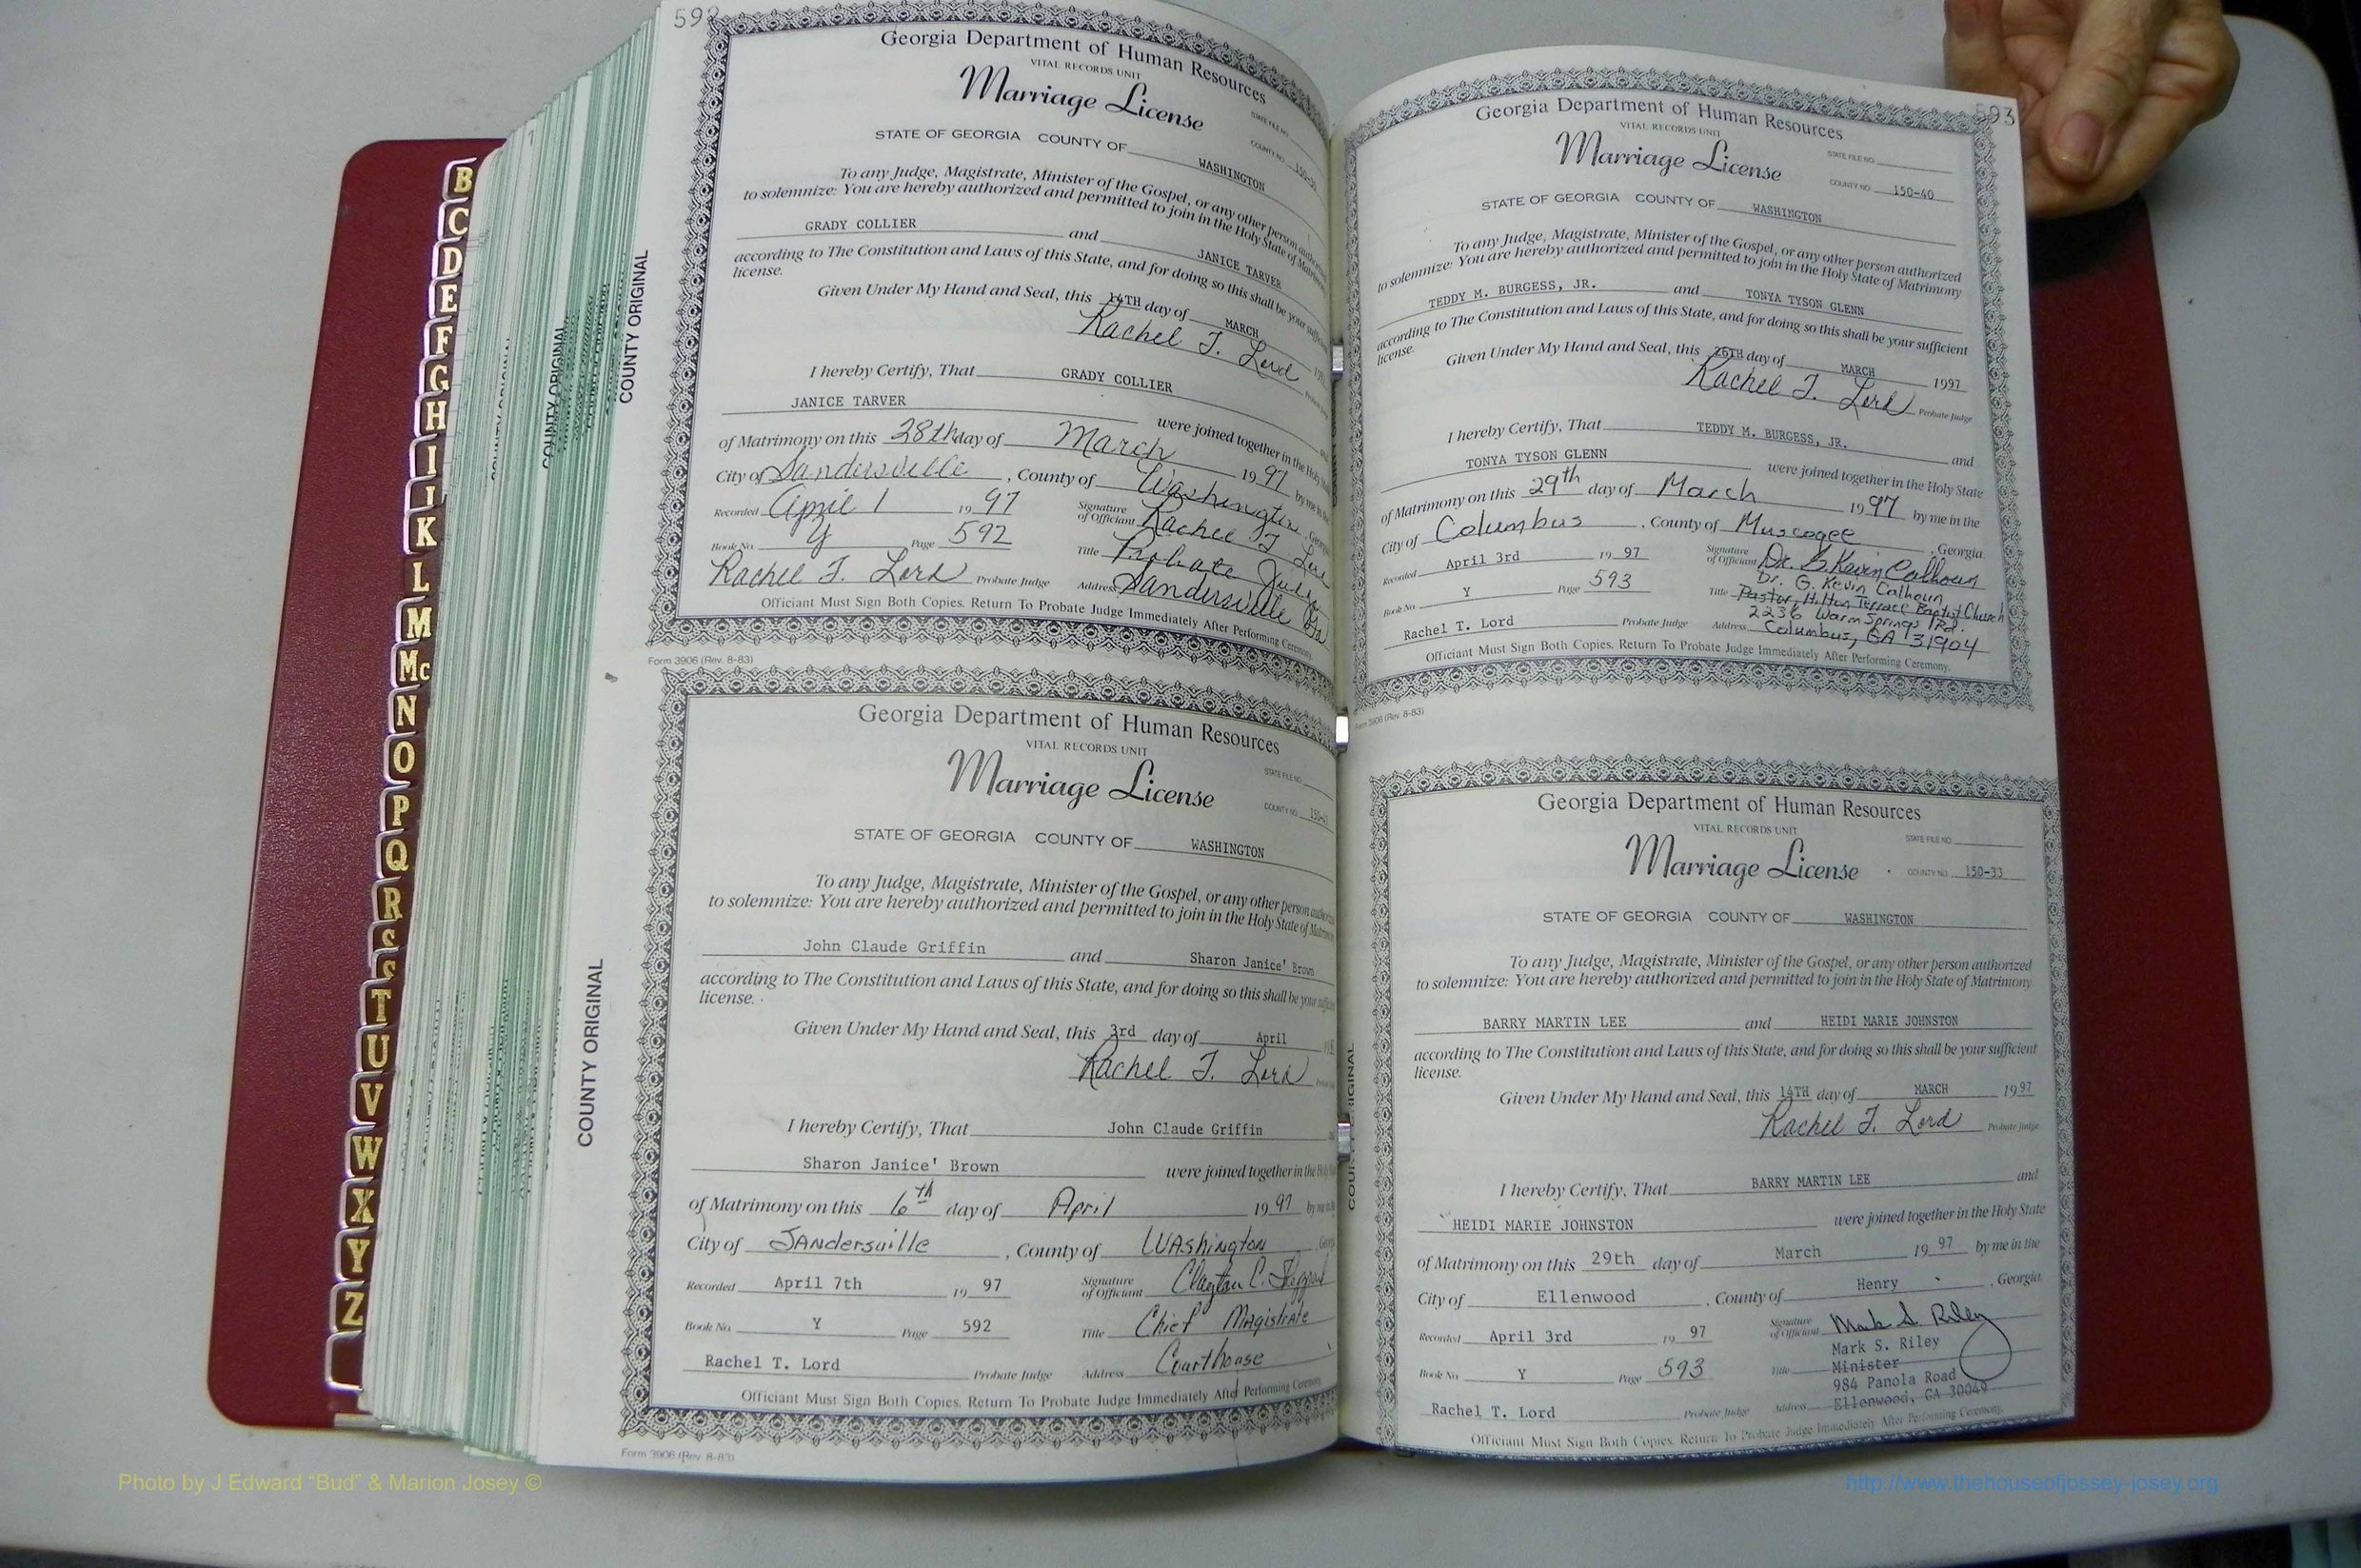 592
Georgia Department of Human Resources
VITAL RECORDS UNIT
Marriage License
STATE FILE NO.
COUNTY NO. 150-
STATE OF GEORGIA COUNTY OF WASHINGTON
To any Judge, Magistrate, Minister of the Gospel, or any other person
to solemnize: You are hereby authorized and permitted to join in the Holy State of Matrimony
GRADY COLLIER and JANICE TARVER
according to The Constitution and Laws of this State, and for doing so this shall be your
license.
Given Under My Hand and Seal, this 14TH day of MARCH
Rachel T. Lord
I hereby Certify, That GRADY COLLIER
JANICE TARVER were joined together in the Holy
of Matrimony on this 28th day of March 1997 by me in the
City of Sandersville, County of Washington, Georgia
Recorded April 1 1997 Signature of Officiant Rachel T. Lord
Book No. Y Page 592 Title Probate Judge
Rachel T. Lord Probate Judge Address Sandersville Ga
Officiant Must Sign Both Copies. Return To Probate Judge Immediately After Performing Ceremony.
Form 3906 (Rev. 8-83)
COUNTY ORIGINAL
Georgia Department of Human Resources
VITAL RECORDS UNIT
Marriage License
STATE FILE NO.
COUNTY NO. 150-
STATE OF GEORGIA COUNTY OF WASHINGTON
To any Judge, Magistrate, Minister of the Gospel, or any other person
to solemnize: You are hereby authorized and permitted to join in the Holy State of Matrimony
John Claude Griffin and Sharon Janice' Brown
according to The Constitution and Laws of this State, and for doing so this shall be your
license.
Given Under My Hand and Seal, this 3rd day of April
Rachel T. Lord
I hereby Certify, That John Claude Griffin
Sharon Janice' Brown were joined together in the Holy
of Matrimony on this 6th day of April 1997 by me in the
City of SANdersville, County of WAShington
Recorded April 7th 1997 Signature of Officiant Clayton C.
Book No. Y Page 592 Title Chief Magistrate
Rachel T. Lord Probate Judge Address Courthouse
Officiant Must Sign Both Copies. Return To Probate Judge Immediately After Performing Ceremony.
Form 3906 (Rev. 8-83)
COUNTY ORIGINAL
593
Georgia Department of Human Resources
VITAL RECORDS UNIT
Marriage License
STATE FILE NO.
COUNTY NO. 150-40
STATE OF GEORGIA COUNTY OF WASHINGTON
To any Judge, Magistrate, Minister of the Gospel, or any other person authorized
to solemnize: You are hereby authorized and permitted to join in the Holy State of Matrimony
TEDDY M. BURGESS, JR. and TONYA TYSON GLENN
according to The Constitution and Laws of this State, and for doing so this shall be your sufficient
license.
Given Under My Hand and Seal, this 26TH day of MARCH 1997
Rachel T. Lord Probate Judge
I hereby Certify, That TEDDY M. BURGESS, JR. and
TONYA TYSON GLENN were joined together in the Holy State
of Matrimony on this 29th day of March 1997 by me in the
City of Columbus, County of Muscogee, Georgia.
Recorded April 3rd 1997 Signature of Officiant Dr. G. Kevin Calhoun
Dr. G. Kevin Calhoun
Book No. Y Page 593 Title Pastor, Hilton Terrace Baptist Church
2236 Warm Springs Rd.
Rachel T. Lord Probate Judge Address Columbus, GA 31904
Officiant Must Sign Both Copies. Return To Probate Judge Immediately After Performing Ceremony.
Form 3906 (Rev. 8-83)
Georgia Department of Human Resources
VITAL RECORDS UNIT
Marriage License
STATE FILE NO.
COUNTY NO. 150-33
STATE OF GEORGIA COUNTY OF WASHINGTON
To any Judge, Magistrate, Minister of the Gospel, or any other person authorized
to solemnize: You are hereby authorized and permitted to join in the Holy State of Matrimony
BARRY MARTIN LEE and HEIDI MARIE JOHNSTON
according to The Constitution and Laws of this State, and for doing so this shall be your sufficient
license.
Given Under My Hand and Seal, this 14TH day of MARCH 1997
Rachel T. Lord Probate Judge
I hereby Certify, That BARRY MARTIN LEE and
HEIDI MARIE JOHNSTON were joined together in the Holy State
of Matrimony on this 29th day of March 1997 by me in the
City of Ellenwood, County of Henry, Georgia
Recorded April 3rd 1997 Signature of Officiant Mark S. Riley
Mark S. Riley
Book No. Y Page 593 Title Minister
984 Panola Road
Rachel T. Lord Probate Judge Address Ellenwood, GA 30049
Officiant Must Sign Both Copies. Return To Probate Judge Immediately After Performing Ceremony.
B
C
D
E
F
G
H
I
K
L
M
Mc
N
O
P
Q
R
S
T
U
V
W
X
Y
Z
Photo by J Edward “Bud” & Marion Josey ©
http://www.thehouseofjossey-josey.org